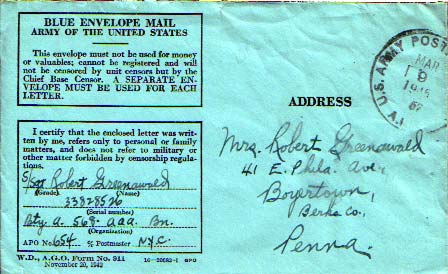 BLUE ENVELOPE MAIL
ARMY OF THE UNITED STATES
This envelope must not be used for money
or valuables; cannot be registered and will
not be censored by unit censors but by the
Chief Base Censor. A SEPARATE EN-
VELOPE MUST BE USED FOR EACH
LETTER.
I certify that the enclosed letter was written
by me, refers only to personal or family
matters, and does not refer to military or
other matter forbidden by censorship regula-
tions.
S/Sgt Robert Greenawald
(Grade) (Name)
33828526
(Serial number)
Bty A. 568 AAA. Bn.
(Organization)
APO No. 654 % Postmaster N.Y.C.
W.D., A.G.O. Form No. 911
November 20, 1942
U.S. ARMY POST
MAR
9
1945
ADDRESS
Mrs. Robert Greenawald
41 E. Phila. Ave,
Boyertown,
Berks Co.,
Penna.